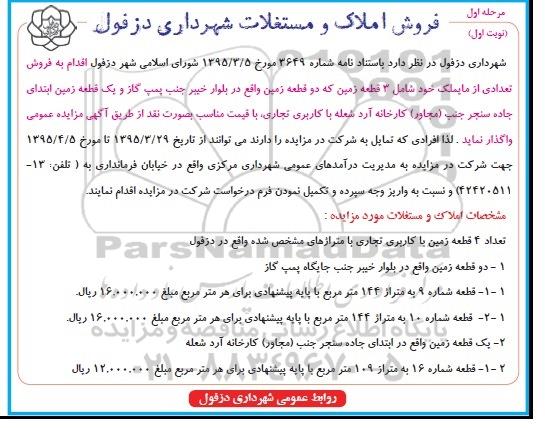 مرحله اول
(نوبت اول)
فروش املاک و مستغلات شهرداری دزفول
شهرداری دزفول در نظر دارد باستناد نامه شماره ۳۶۴۹ مورخ ۱۳۹۵/۳/۵ شورای اسلامی شهر دزفول اقدام به فروش
تعدادی از مایملک خود شامل ۳ قطعه زمین که دو قطعه زمین واقع در بلوار خیبر جنب پمپ گاز و یک قطعه زمین ابتدای
جاده سنجر جنب (مجاور) کارخانه آرد شعله با کاربری تجاری، با قیمت مناسب بصورت نقد از طریق آگهی مزایده عمومی
واگذار نماید . لذا افرادی که تمایل به شرکت در مزایده را دارند می توانند از تاریخ ۱۳۹۵/۳/۲۹ تا مورخ ۱۳۹۵/۴/۵
جهت شرکت در مزایده به مدیریت درآمدهای عمومی شهرداری مرکزی واقع در خیابان فرمانداری به ( تلفن: ۱۳-
۴۲۴۲۰۵۱۱) و نسبت به واریز وجه سپرده و تکمیل نمودن فرم درخواست شرکت در مزایده اقدام نمایند.
مشخصات املاک و مستغلات مورد مزایده :
تعداد ۴ قطعه زمین با کاربری تجاری با متراژهای مشخص شده واقع در دزفول
۱ - دو قطعه زمین واقع در بلوار خیبر جنب جایگاه پمپ گاز
۱ -۱- قطعه شماره ۹ به متراژ ۱۴۴ متر مربع با پایه پیشنهادی برای هر متر مربع مبلغ ۱۶.۰۰۰.۰۰۰ ریال.
۱ -۲- قطعه شماره ۱۰ به متراژ ۱۴۴ متر مربع با پایه پیشنهادی برای هر متر مربع مبلغ ۱۶.۰۰۰.۰۰۰ ریال.
۲- یک قطعه زمین واقع در ابتدای جاده سنجر جنب (مجاور) کارخانه آرد شعله
۲ -۱- قطعه شماره ۱۶ به متراژ ۱۰۹ متر مربع با پایه پیشنهادی برای هر متر مربع مبلغ ۱۲.۰۰۰.۰۰۰ ریال
روابط عمومی شهرداری دزفول
ParsNamadData
پایگاه اطلاع رسانی مناقصه و مزایده
۰۲۱-۸۸۳۴۹۶۷۰-۵